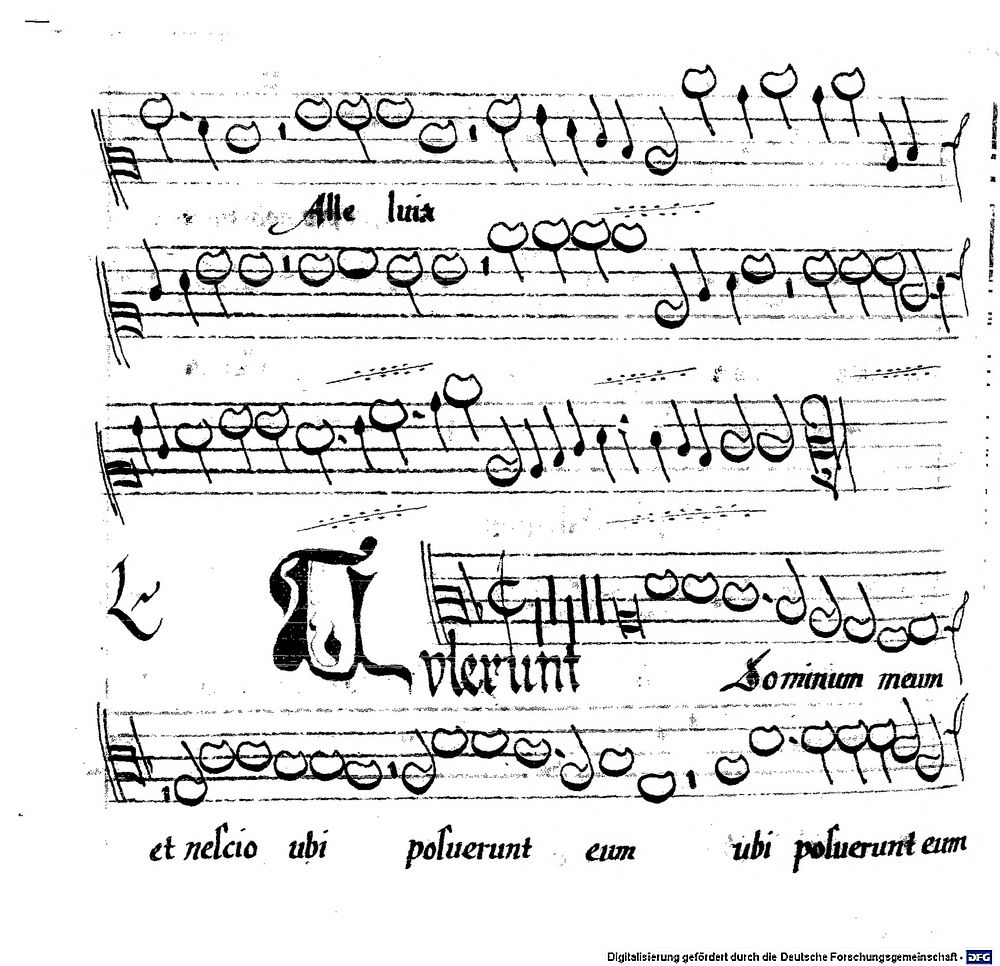 Alle luia
Tulerunt Dominum meum
et nescio ubi posuerunt eum ubi posuerunt eum
Digitalisierung gefördert durch die Deutsche Forschungsgemeinschaft - DFG